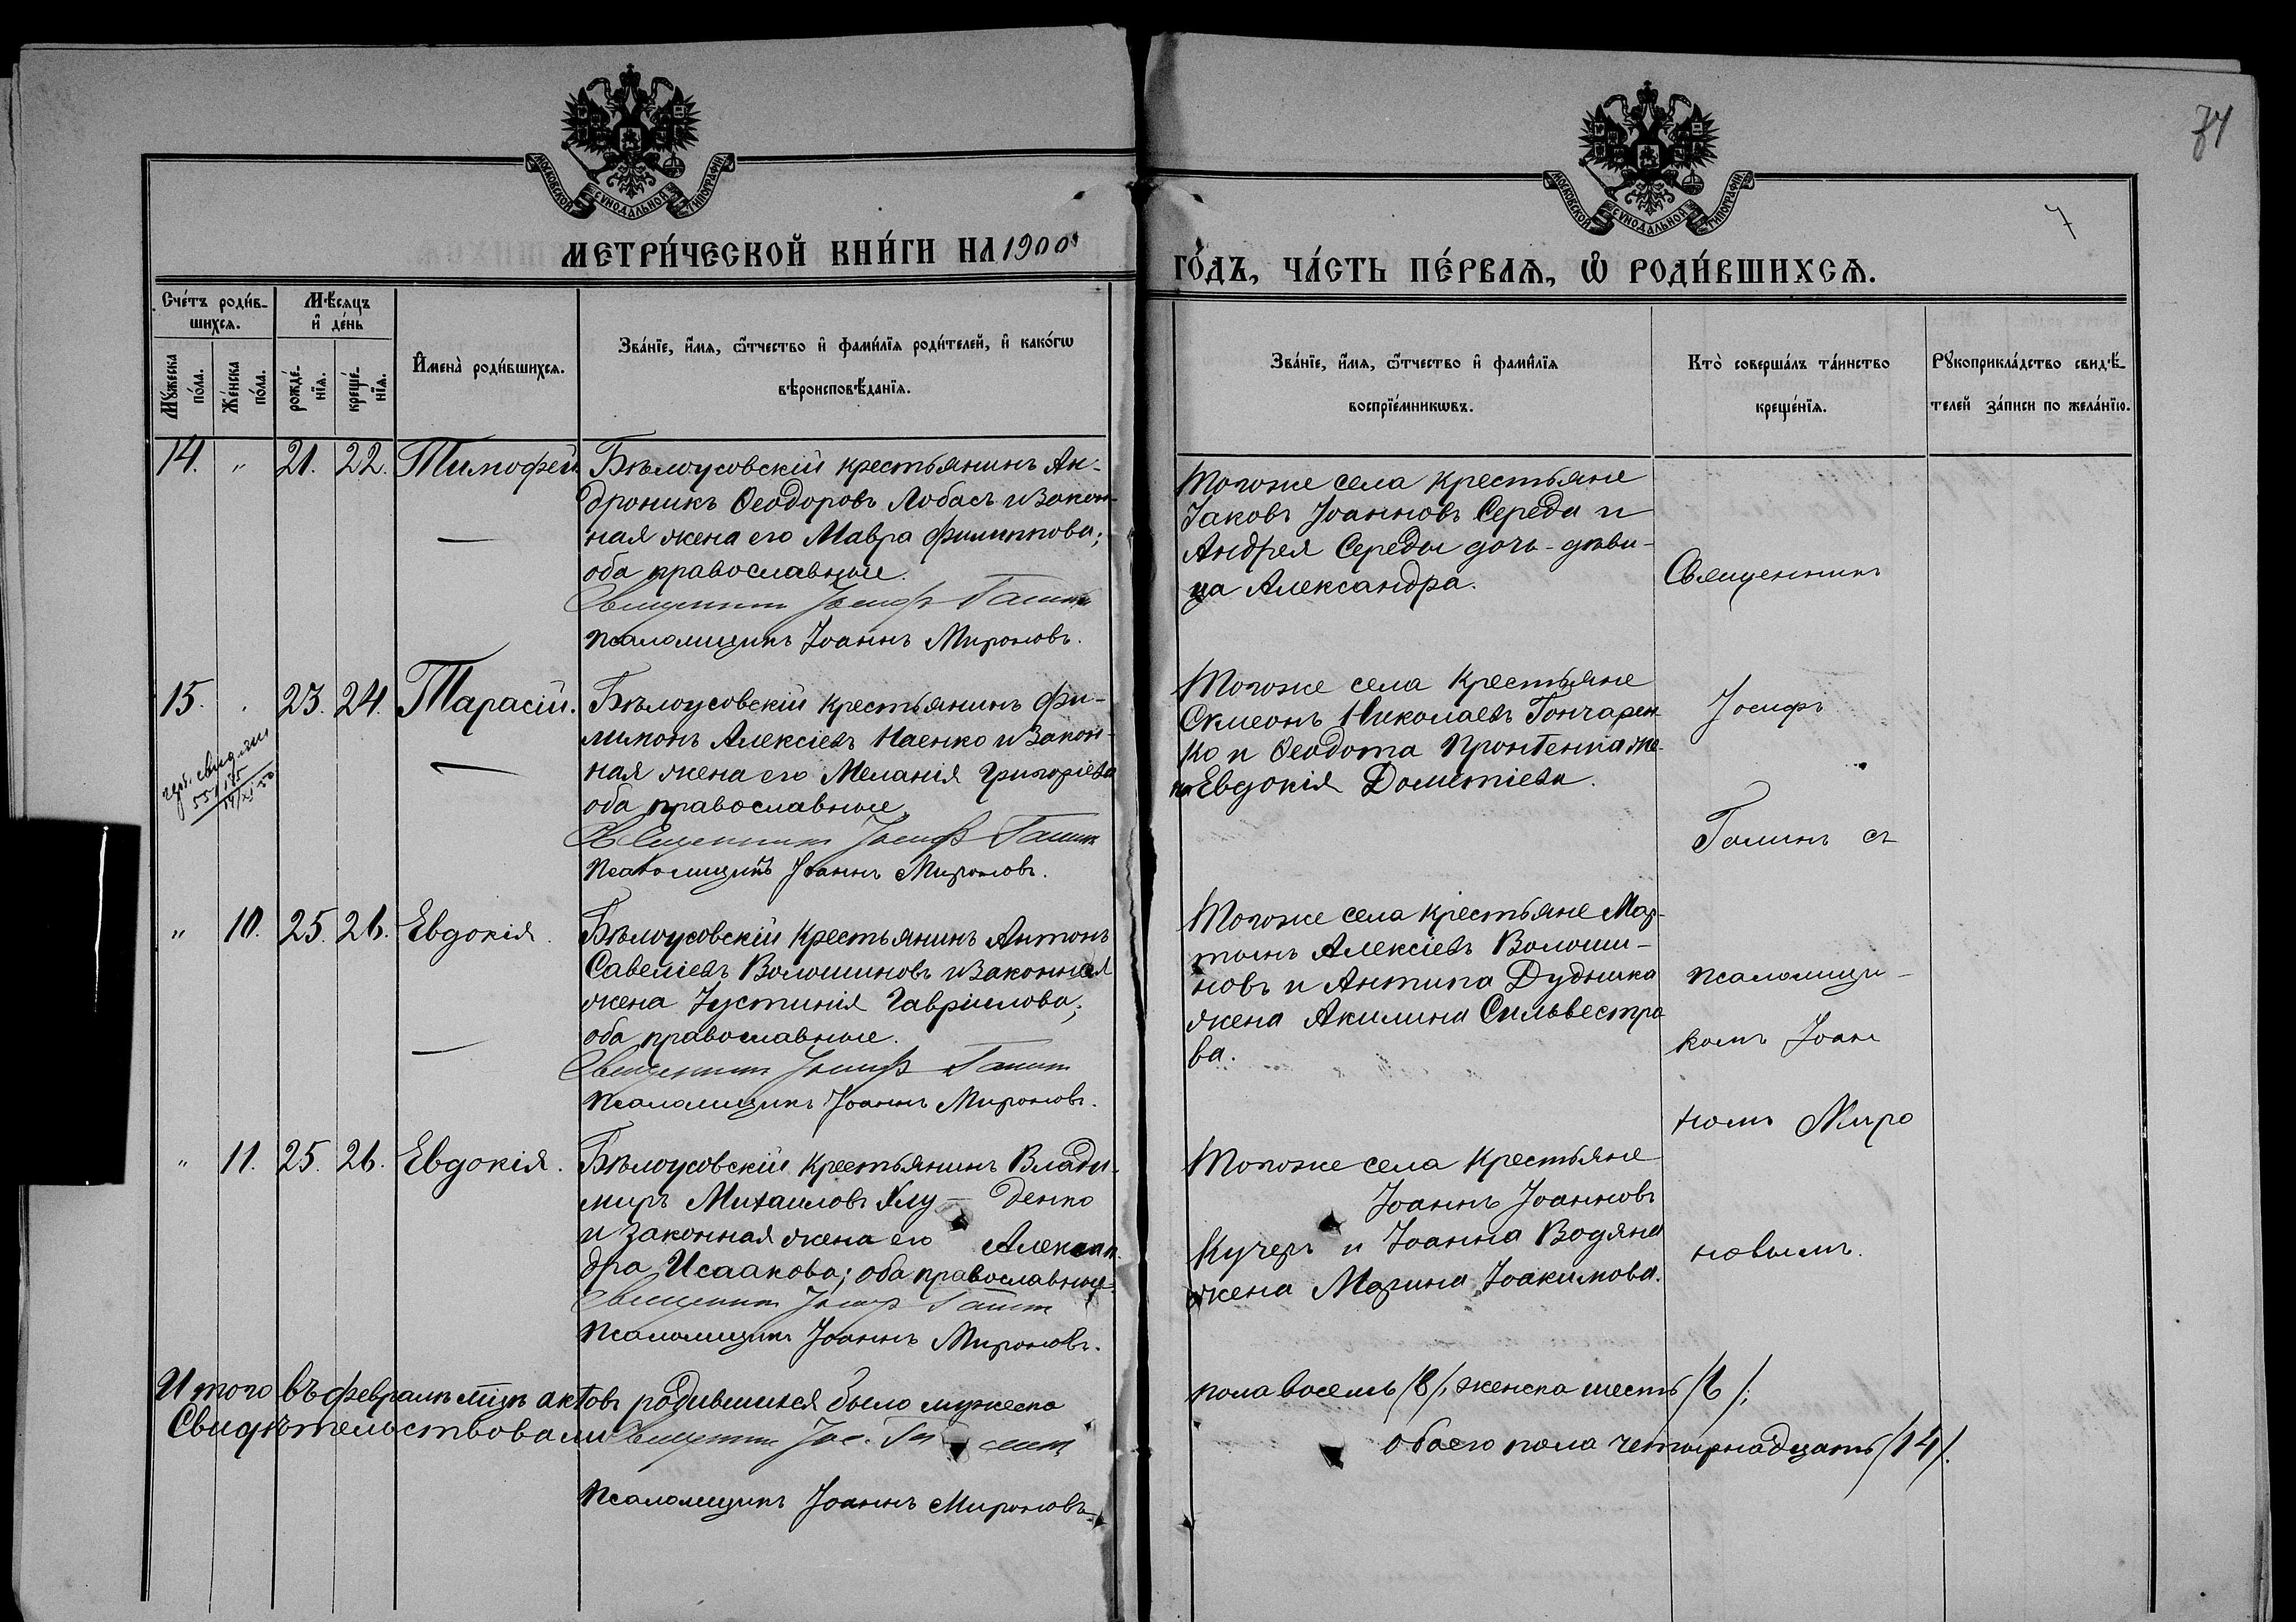 74
7
МОСКОВСКОЙ СУНОДАЛЬНОЙ ТИПОГРАФІИ
МОСКОВСКОЙ СУНОДАЛЬНОЙ ТИПОГРАФІИ
МЕТРИ́ЧЕСКОЙ КНИ́ГИ НА 1900
ГО́ДЪ, ЧА́СТЬ ПЕ́РВАѦ, Ѡ РОДИ́ВШИХСѦ.
Сче́тъ роди́в-
шихсѧ.
Мꙋ́жеска
по́ла.
Же́нска
по́ла.
Мѣ́сѧцъ
и де́нь
рожде́-
нїѧ.
креще́-
нїѧ.
Имена̀ роди́вшихсѧ.
Зва́нїе, и́мѧ, ѿтчество и фами́лїѧ роди́телей, и како́гѡ
вѣроисповѣ́данїѧ.
Зва́нїе, и́мѧ, ѿтчество и фами́лїѧ
воспрїе́мникѡвъ.
Кто̀ соверша́лъ та́инство
креще́нїѧ.
Рꙋкоприкла́дство свидѣ́-
телей за́писи по жела́нїю.
14. " 21. 22. Тимофей
Бѣлоусовскій крестьянинъ Ан-
дроникъ Ѳеодоровъ Лобасъ и закон-
ная жена его Мавра Филиппова;
оба православные.
Священникъ Іосифъ
Псаломщикъ Іоаннъ Мироновъ.
Тогоже села крестьяне
Іаковъ Іоанновъ Середа и
Андрея Середы дочь-дѣви-
ца Александра.
15. 23. 24. Тарасій.
Бѣлоусовскій крестьянинъ Фи-
лимонъ Алексіевъ Наенко и закон-
ная жена его Меланія Григоріева
оба православные.
Священникъ Іосифъ
Псаломщикъ Іоаннъ Мироновъ.
Тогоже села крестьяне
Симеонъ Николаевъ Гончарен-
ко и Ѳеодота же-
на Евдокія Дометіева.
" 10. 25. 26. Евдокія.
Бѣлоусовскій крестьянинъ Антонъ
Савеліевъ Волошиновъ и законная
жена Іустинія Гавріилова;
оба православные.
Священникъ Іосифъ
Псаломщикъ Іоаннъ Мироновъ.
Тогоже села крестьяне Мар-
тынъ Алексіевъ Волоши-
новъ и Антипа Дудника
жена Акилина Сильвестро
ва.
" 11. 25. 26. Евдокія.
Бѣлоусовскій крестьянинъ Влади-
миръ Михаиловъ Хлу- денко
и законная жена его Алексан-
дра Исаакова; оба православные.
Священникъ Іосифъ
Псаломщикъ Іоаннъ Мироновъ.
Тогоже села крестьяне
Іоаннъ Іоанновъ
Кучеръ и Іоанна Водяна
жена Марина Іоакимова.
Священникъ
Іосифъ
съ
псаломщи-
комъ Іоан
номъ Миро
новымъ.
Итого въ февралѣ м-цѣ актовъ родившихся было мужеска
пола восемь /8/, женска шесть /6/;
обоего пола четырнадцать /14/.
Свидѣтельствовали Священникъ
Псаломщикъ Іоаннъ Мироновъ